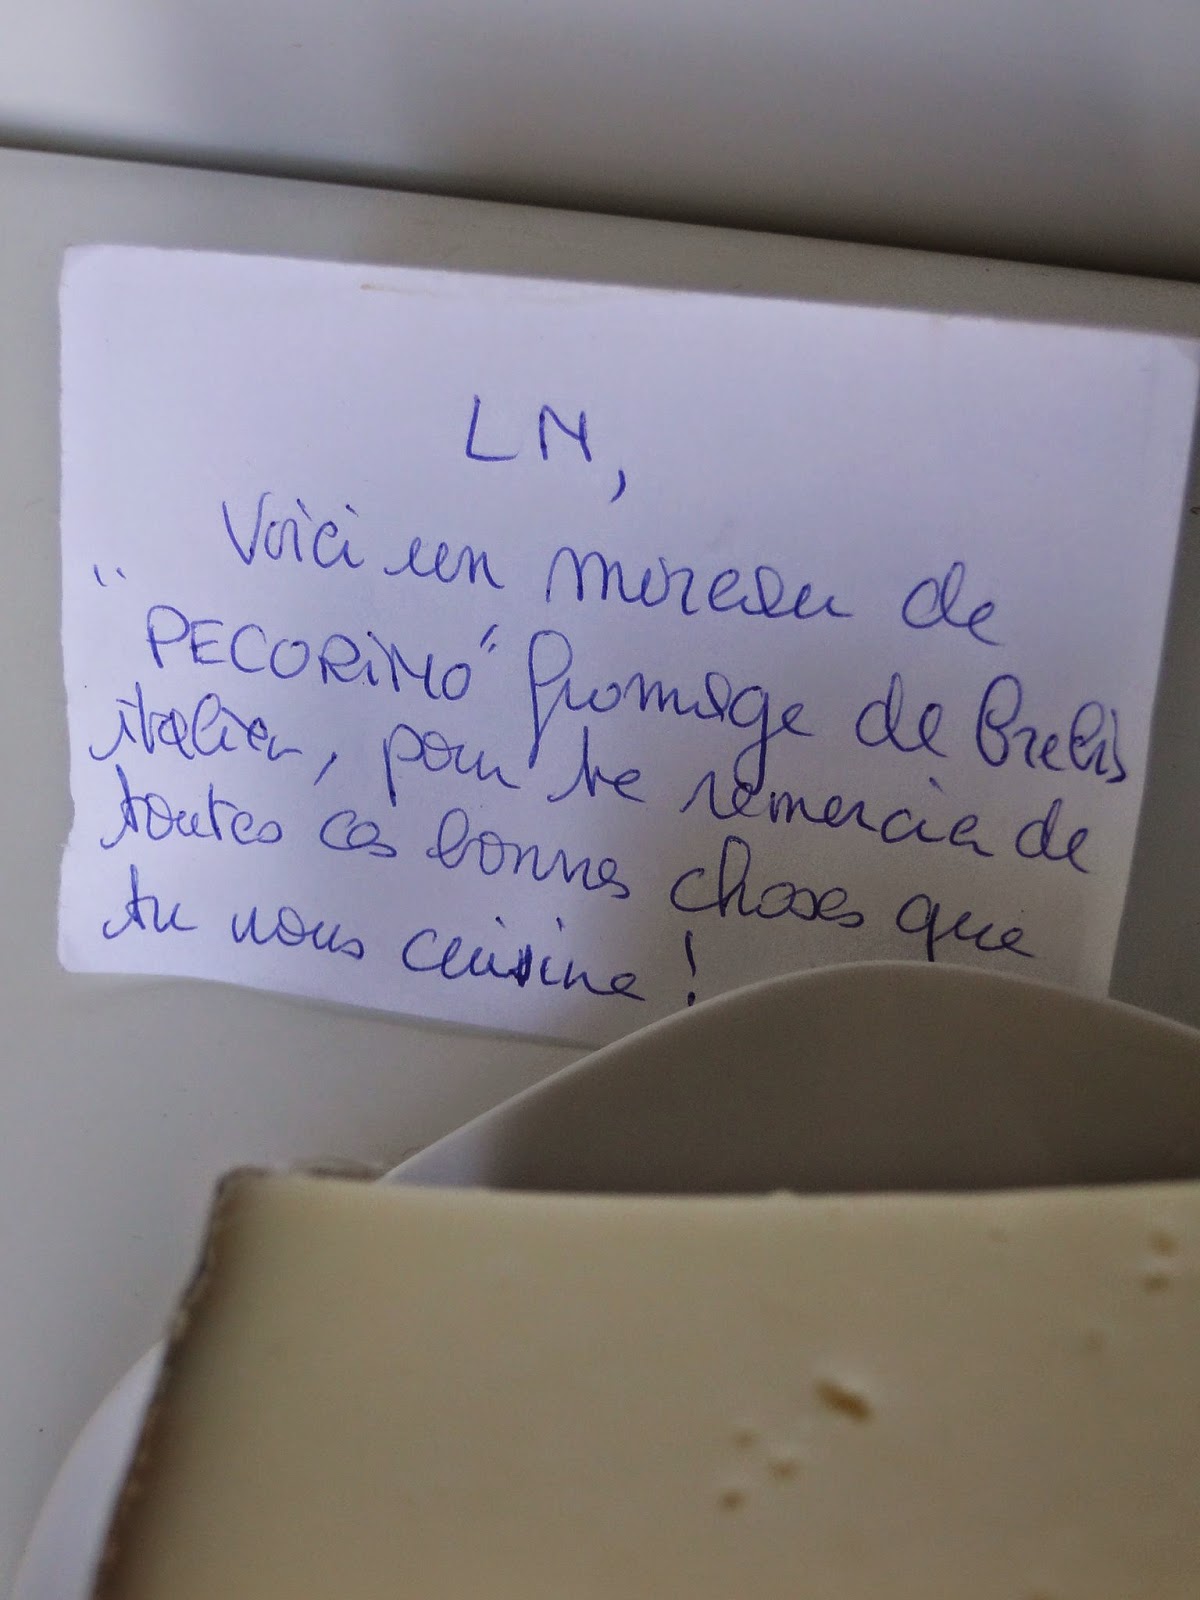 LN,
Voici un morceau de
"PECORINO" fromage de brebis
italien, pour te remercier de
toutes ces bonnes choses que
tu nous cuisine !